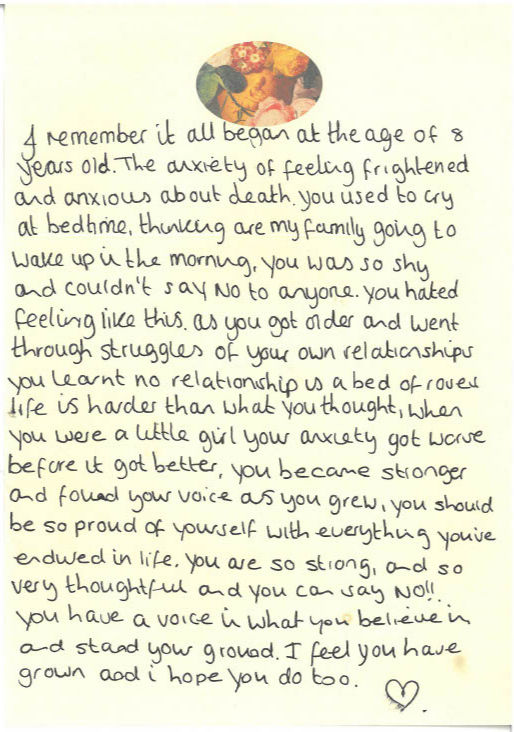 I remember it all began at the age of 8
years old. The anxiety of feeling frightened
and anxious about death. you used to cry
at bedtime, thinking are my family going to
wake up in the morning, you was so shy
and couldn't say NO to anyone. you hated
feeling like this. as you got older and went
through struggles of your own relationships
you learnt no relationship is a bed of roses
life is harder than what you thought, when
you were a little girl your anxiety got worse
before it got better, you became stronger
and found your voice as you grew, you should
be so proud of yourself with everything you've
endured in life. you are so strong, and so
very thoughtful and you can say NO!!
you have a voice in what you believe in
and stand your ground. I feel you have
grown and i hope you do too.